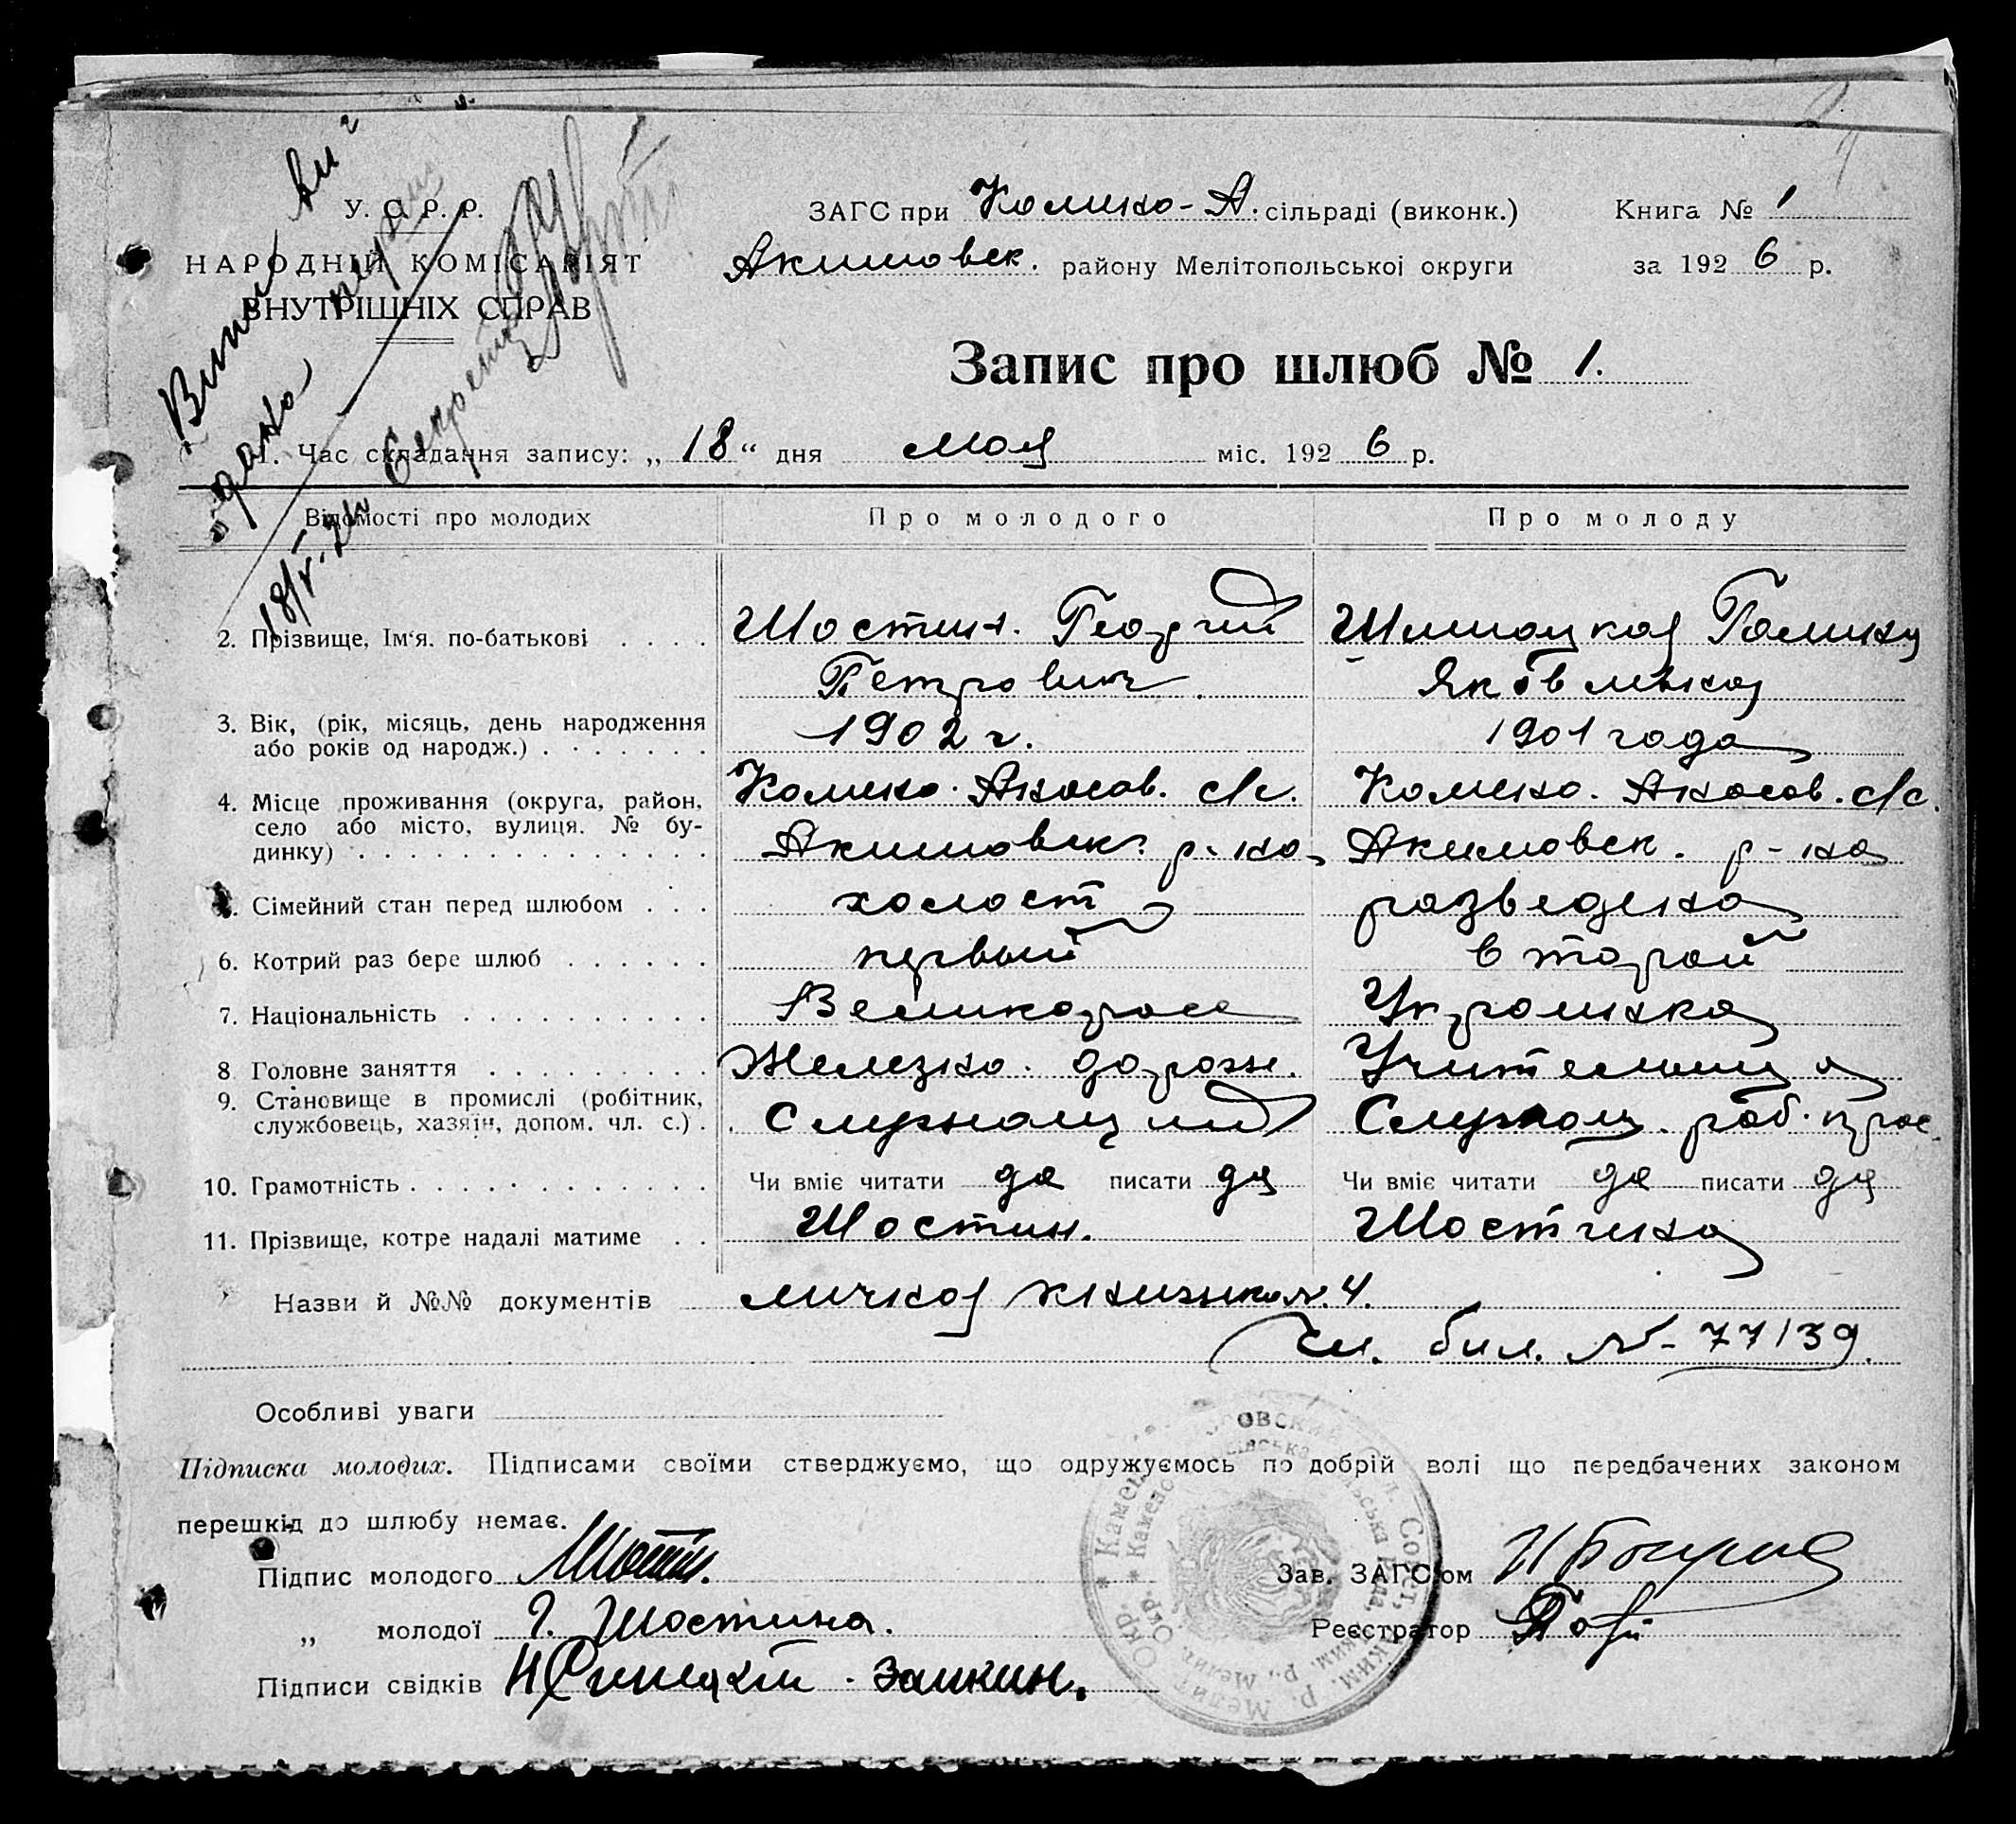 У. С. Р. Р.
НАРОДНІЙ КОМІСАРІЯТ
ВНУТРІШНІХ СПРАВ
ЗАГС при Камено-А. сільраді (виконк.)
Книга № 1
Акимовск. району Мелітопольської округи
за 1926 р.
Запис про шлюб № 1.
1. Час складання запису: „18“ дня мая міс. 1926 р.
Відомості про молодих
Про молодого
Про молоду
2. Прізвище, Ім‘я, по-батькові . . . .
Шостин. Георгий
Петрович.
Шимацкая Галина
Яковлевна
3. Вік, (рік, місяць, день народження
або років од народж.) . . . . . . .
1902 г.
1901 года
4. Місце проживання (округа, район,
село або місто, вулиця. № бу-
динку) . . . . . . . . . . . . . .
Камено. Анагов. с/с.
Акимовск. р-на
Камено. Анагов. с/с.
Акимовск. р-на
Сімейний стан перед шлюбом . . .
холост
разведена
6. Котрий раз бере шлюб . . . . . .
первый
второй
7. Національність . . . . . . . . . .
Великоросс
Украинка
8 Головне заняття . . . . . . . . .
Железно. дорожн.
Учительница
9. Становище в промислі (робітник,
службовець, хазяїн, допом. чл. с.) .
Служащий
Служащ. раб. прос.
10. Грамотність . . . . . . . . . . . .
Чи вміє читати да писати да
Чи вміє читати да писати да
11. Прізвище, котре надалі матиме . .
Шостин.
Шостина
Назви й №№ документів
личная книжка № 4.
чл. бил. № - 77139.
Особливі уваги
Підписка молодих. Підписами своїми стверджуємо, що одружуємось по добрій волі що передбачених законом
перешкід до шлюбу немає.
Підпис молодого
Зав. ЗАГС‘ом
„ молодої Г. Шостина.
Реєстратор
Підписи свідків